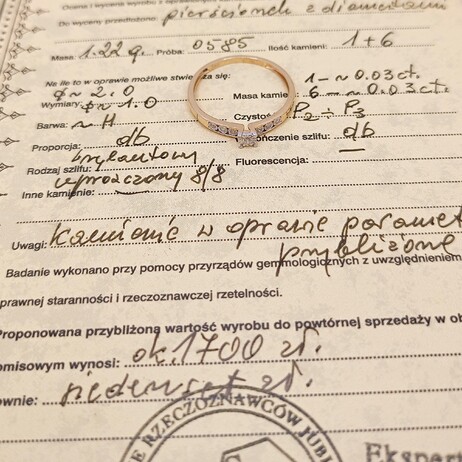 Ocena i wycena wyrobu z
Do wyceny przedłożono: pierścionek z diamentami
Masa: 1.22 g. Próba: 0585 Ilość kamieni: 1 + 6
Na ile to w oprawie możliwe stwierdza się:
Wymiary: ϕ ~ 2.0 ϕ ~ 1.0 Masa kamieni: 1 - ~ 0.03 ct. 6 - ~ 0.03 ct.
Barwa: ~ H Czystość: P2 ÷ P3
Proporcja: db Wykończenie szlifu: db
Rodzaj szlifu: brylantowy uproszczony 8/8 Fluorescencja: —
Inne kamienie: —
Uwagi: Kamienie w oprawie paramet
przybliżone
Badanie wykonano przy pomocy przyrządów gemmologicznych z uwzględnieniem
prawnej staranności i rzeczoznawczej rzetelności.
Proponowana przybliżona wartość wyrobu do powtórnej sprzedaży w ob
omisowym wynosi: ok. 1700 zł.
ownie:
E RZECZOZNAWCÓW JUBI
Eksper